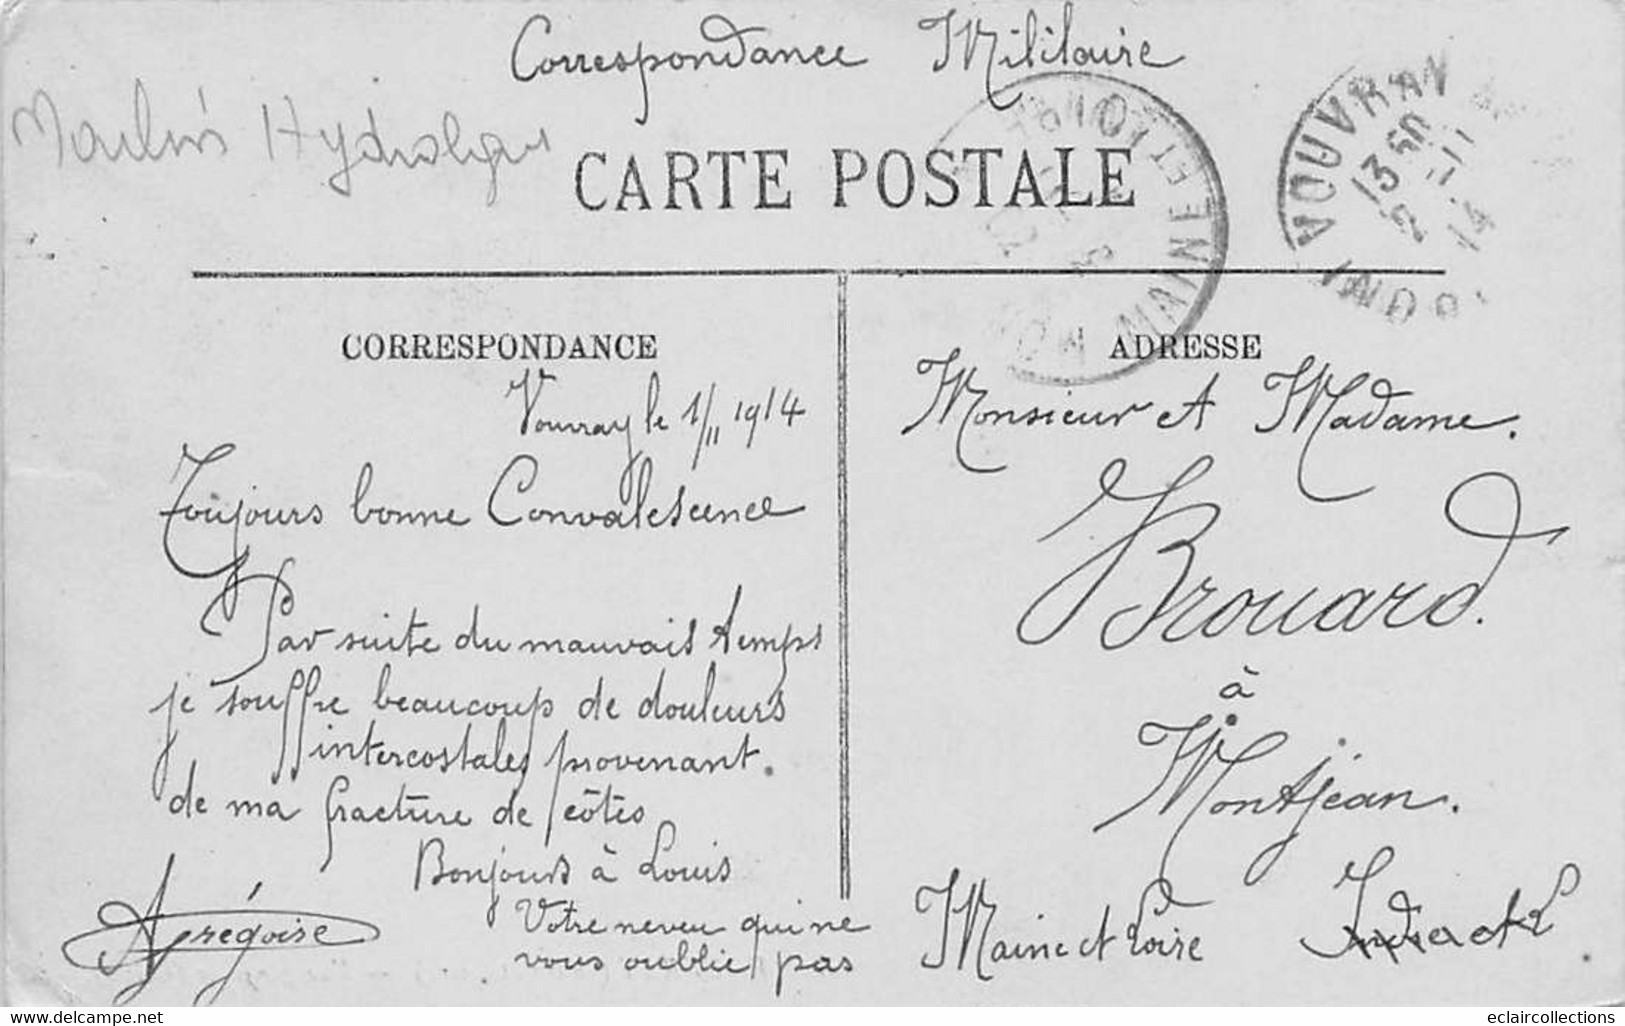 Correspondance Militaire
Moulins Hydrolique
CARTE POSTALE
VOUVRAY
13 50
2 -11
14
MAINE-ET-LOIRE
CORRESPONDANCE
Vouvray le 1/11 1914
Toujours bonne Convalescence
Par suite du mauvais temps
je souffre beaucoup de douleurs
intercostales provenant.
de ma fracture de côtes
Bonjours à Louis
Votre neveu qui ne
vous oublie pas
A Grégoire
ADRESSE
Monsieur et Madame.
Brouard.
à
Montjean.
Maine et Loire
Indre et L
www.delcampe.net
eclaircollections